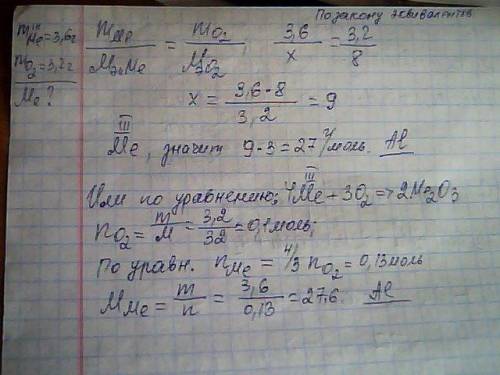 По закону эквивалентов
m Me = 3,6г
m O2 = 3,2г
Me?
mMe / Mэ Me = mO2 / Mэ O2 ; 3,6 / x = 3,2 / 8
x = 3,6·8 / 3,2 = 9
III
Me, значит 9·3=27 г/моль. Al
Или по уравнению; 4Me + 3O2 => 2Me2O3
III
nO2 = m / M = 3,2 / 32 = 0,1моль;
По уравн. nMe = 4/3 nO2 = 0,13моль
MMe = m / n = 3,6 / 0,13 = 27,6. Al